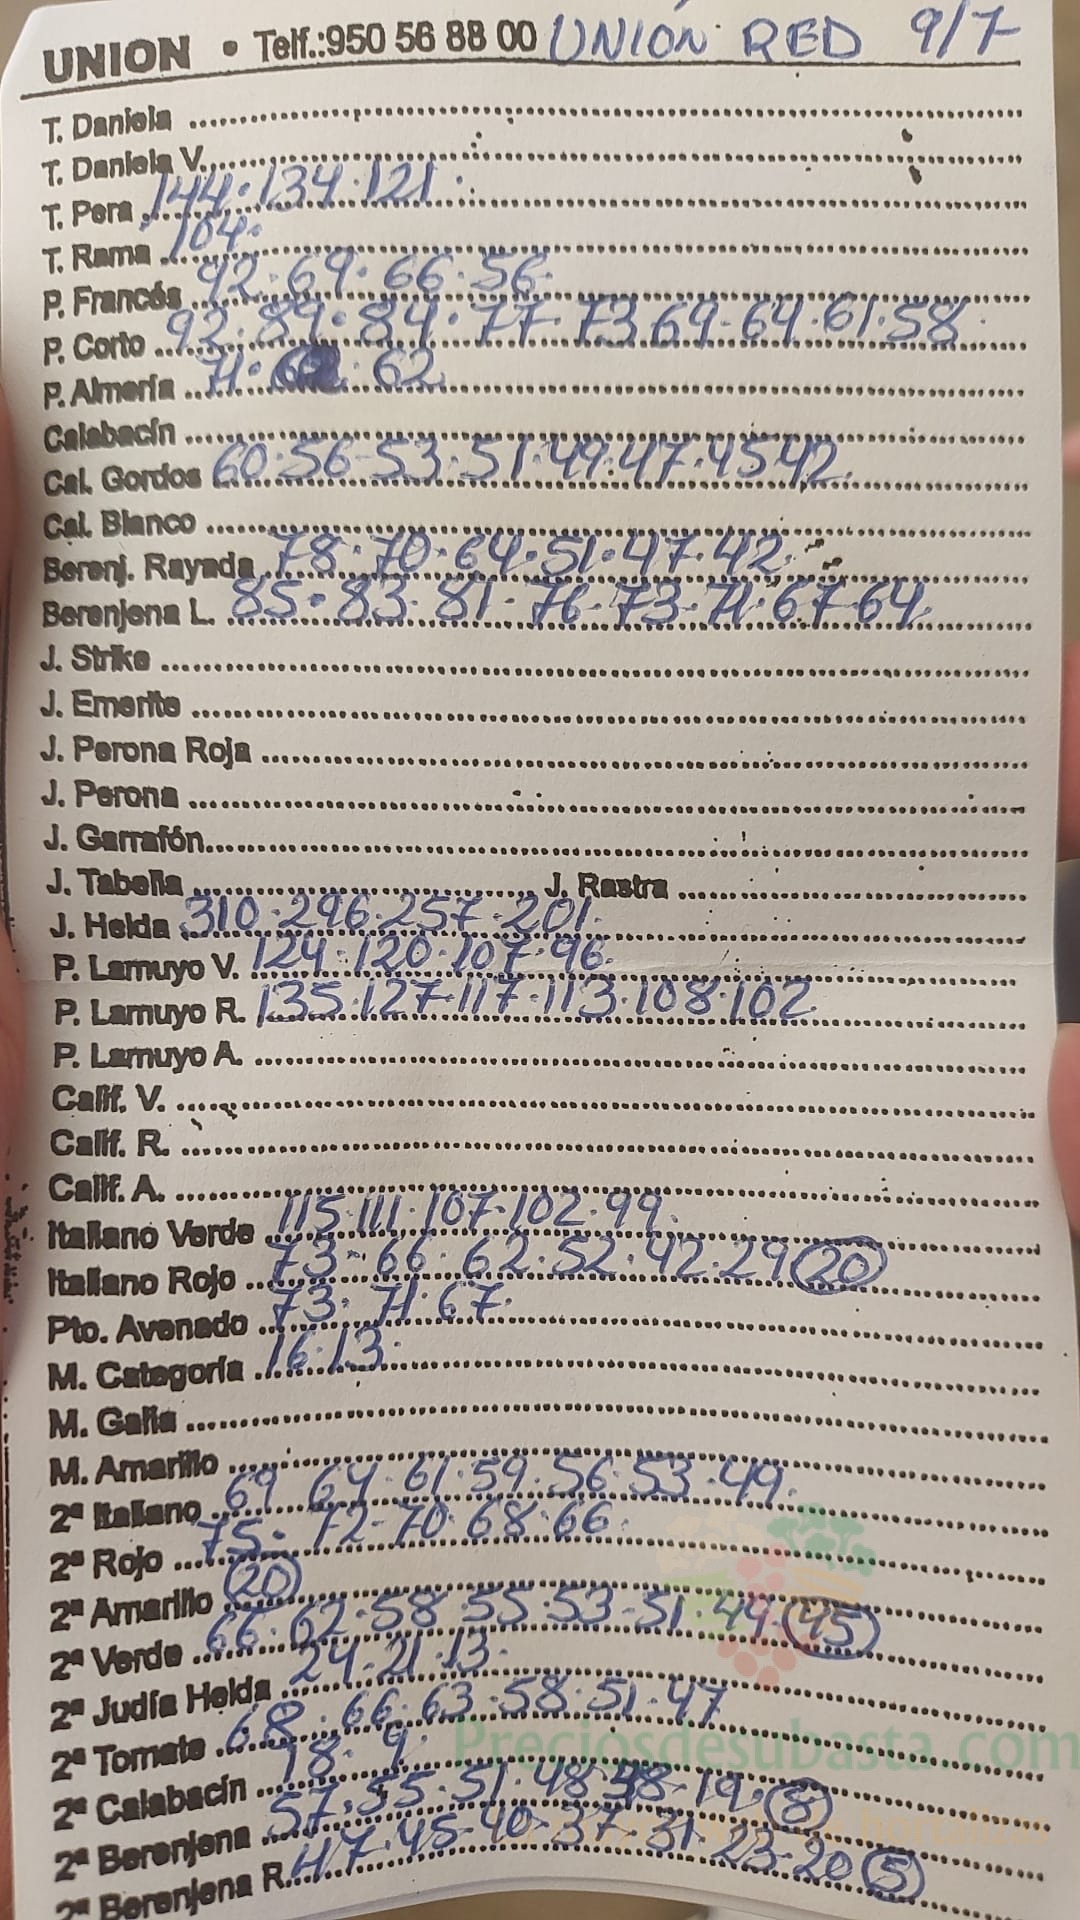 UNION • Telf.:950 56 88 00 UNIÓN RED 9/7
T. Daniela
T. Daniela V.
T. Pera 144·134·121·
T. Rama 104·
P. Francés 92·69·66·56·
P. Corto 92·89·84·77·73 69-64·61·58·
P. Almería 71· · 62
Calabacín
Cal. Gordos 60·56-53·51·49·47·45 42·
Cal. Blanco
Berenj. Rayada 78·70·64·51·47·42·
Berenjena L. 85·83·81-76-73-71·67-64·
J. Strike
J. Emerite
J. Perona Roja
J. Perona
J. Garrafón
J. Tabella J. Rastra
J. Helda 310·296·257·201·
P. Lamuyo V. 124·120·107·96·
P. Lamuyo R. 135·127·117·113·108·102·
P. Lamuyo A.
Calif. V.
Calif. R.
Calif. A.
Italiano Verde 115·111·107·102·99·
Italiano Rojo 73·66·62·52·42·29 20
Pto. Avenado 73·71·67·
M. Categoría 16·13·
M. Galia
M. Amarillo
2ª Italiano 69 64·61·59·56·53·49·
2ª Rojo 75·72-70·68·66·
2ª Amarillo 20
2ª Verde 66·62·58·55·53-51·49 45
2ª Judía Helda 24-21·13·
2ª Tomate 68·66·63·58·51·47
2ª Calabacín 18·9·
2ª Berenjena 57·55·51·48 38-19· 8
2ª Berenjena R. 47·45-40-37-31-23-20 5
Preciosdesubasta.com